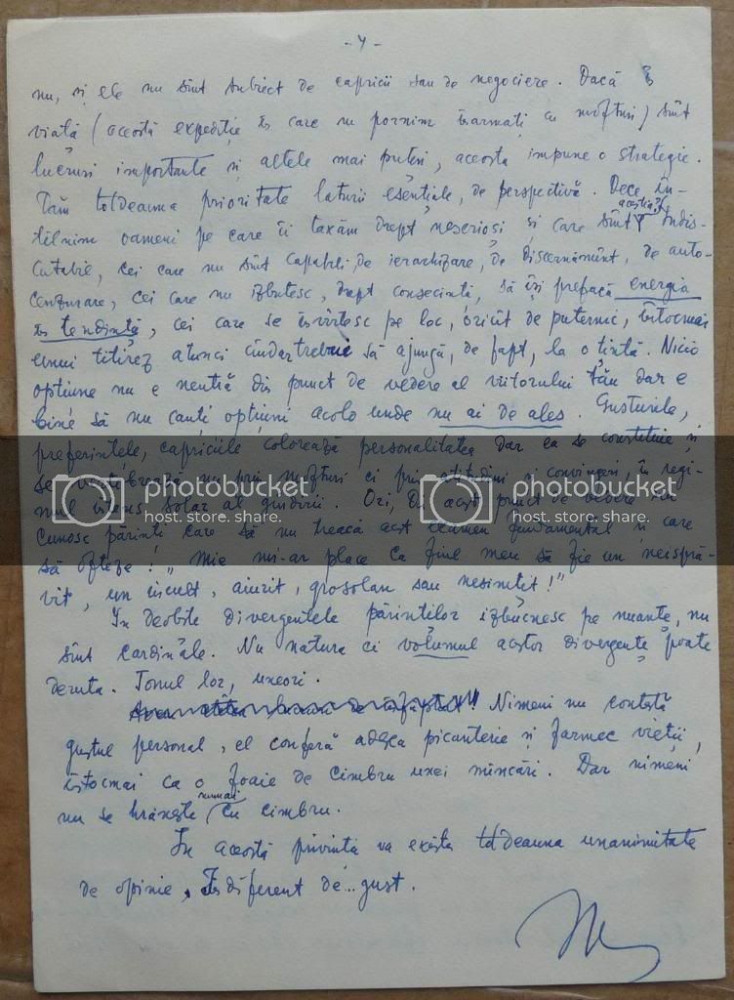 - 4 -
nu, și ele nu sînt subiect de capricii sau de negociere. Dacă în
viață (această expediție în care nu pornim înarmați cu mofturi) sînt
lucruri importante și altele mai puțin, aceasta impune o strategie.
Tăm totdeauna prioritate laturii esențiale, de perspectivă. Deci, în-
tîlnim oameni pe care îi taxăm drept neserioși și care sînt aceștia? Indis-
cutabil, cei care nu sînt capabili de ierarhizare, de discernămînt, de auto-
cenzurare, cei care nu izbutesc, drept consecință, să își prefacă energia
în tendință, cei care se învîrtesc pe loc, oricît de puternic, întocmai
unui titirez atunci cînd ar trebui să ajungă, de fapt, la o țintă. Nicio
opțiune nu e neutră din punct de vedere al viitorului tău dar e
bine să nu cauți opțiuni acolo unde nu ai de ales. Gusturile,
preferințele, capriciile colorează personalitatea dar ea se constituie și
se nu prin mofturi ci prin atitudini și convingeri, în regi-
mul intens solar al gîndirii. Ori, din acest punct de vedere nu
cunosc părinți care să nu treacă acest examen fundamental și care
să ofteze: "Mie mi-ar place ca fiul meu să fie un neispră-
vit, un incult, aiurit, grosolan sau nesimțit!"
În deobște divergențele părinților izbucnesc pe nuanțe, nu
sînt cardinale. Nu natura ci volumul acestor divergențe poate
deruta. Tonul lor, uneori.
Nimeni nu contestă
gustul personal, el conferă adesea picanterie și farmec vieții,
întocmai ca o foaie de cimbru unei mîncări. Dar nimeni
nu se hrănește numai cu cimbru.
În această privință va exista totdeauna unanimitate
de opinie, Indiferent de... gust.
photobucket
host. store. share.
photobucket
host. store. share.